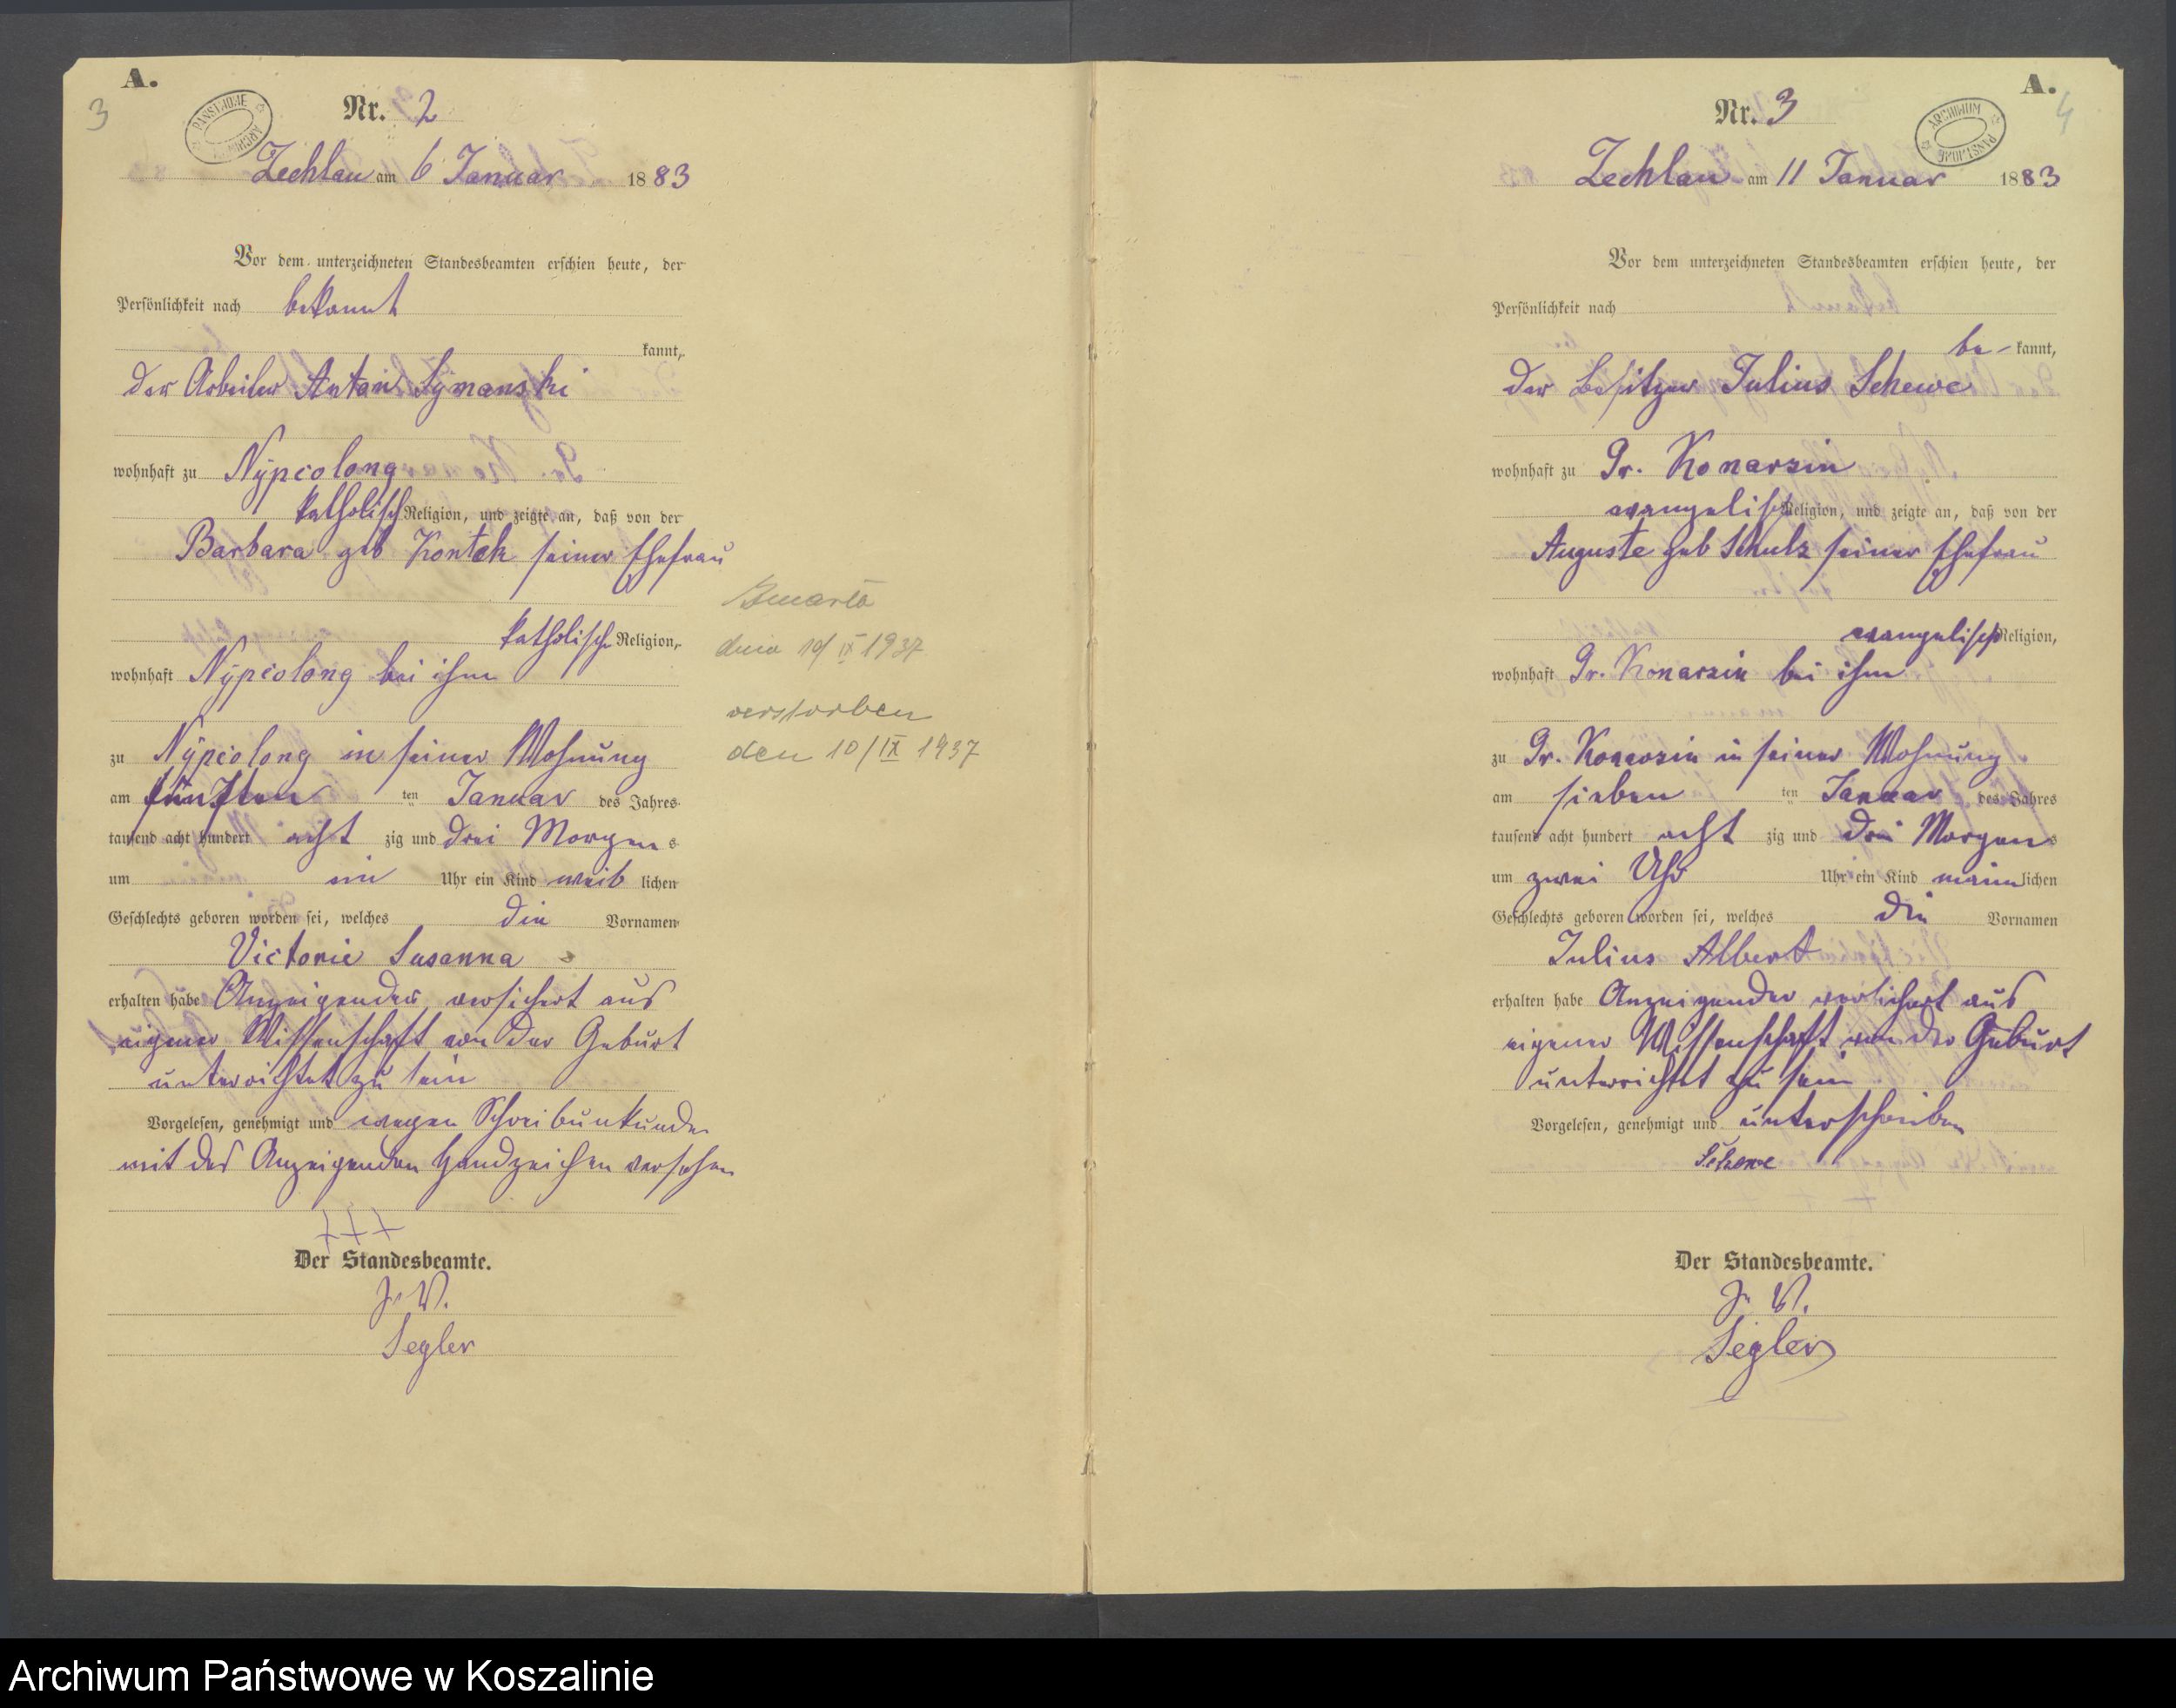 A.
3
PAŃSTWOWE ARCHIWUM
Nr. 2
Zechlau am 6 Januar 1883
Vor dem unterzeichneten Standesbeamten erschien heute, der
Persönlichkeit nach bekannt
kannt,
der Arbeiter Anton Symanski
wohnhaft zu Nypcolong
katholisch Religion, und zeigte an, daß von der
Barbara geb Kontek seiner Ehefrau
katholischer Religion,
wohnhaft Nypcolong bei ihm
zu Nypcolong in seiner Wohnung
am fünften ten Januar des Jahres
tausend acht hundert acht zig und drei Morgens
um ein Uhr ein Kind weib lichen
Geschlechts geboren worden sei, welches die Vornamen
Victorie Susanna
erhalten habe Anzeigender versichert aus
eigener Wissenschaft von der Geburt
unterrichtet zu sein
Vorgelesen, genehmigt und wegen Schreibunkunde
mit des Anzeigenden Handzeichen versehen
+++
Der Standesbeamte.
J. V.
Segler
Zmarła
dnia 10/IX 1937
verstorben
den 10/IX 1937
A.
4
ARCHIWUM PAŃSTWOWE
Nr. 3
Zechlau am 11 Januar 1883
Vor dem unterzeichneten Standesbeamten erschien heute, der
Persönlichkeit nach
be- kannt,
der Besitzer Julius Schewe
wohnhaft zu Gr. Konarzin
evangelisch Religion, und zeigte an, daß von der
Auguste geb Schulz seiner Ehefrau
evangelisch Religion,
wohnhaft Gr. Konarzin bei ihm
zu Gr. Konarzin in seiner Wohnung
am sieben ten Januar des Jahres
tausend acht hundert acht zig und drei Morgens
um zwei Uhr Uhr ein Kind männlichen
Geschlechts geboren worden sei, welches die Vornamen
Julius Albert
erhalten habe Anzeigender versichert aus
eigener Wissenschaft von der Geburt
unterrichtet zu sein
Vorgelesen, genehmigt und unterschrieben
Schewe
Der Standesbeamte.
J. V.
Segler
Archiwum Państwowe w Koszalinie